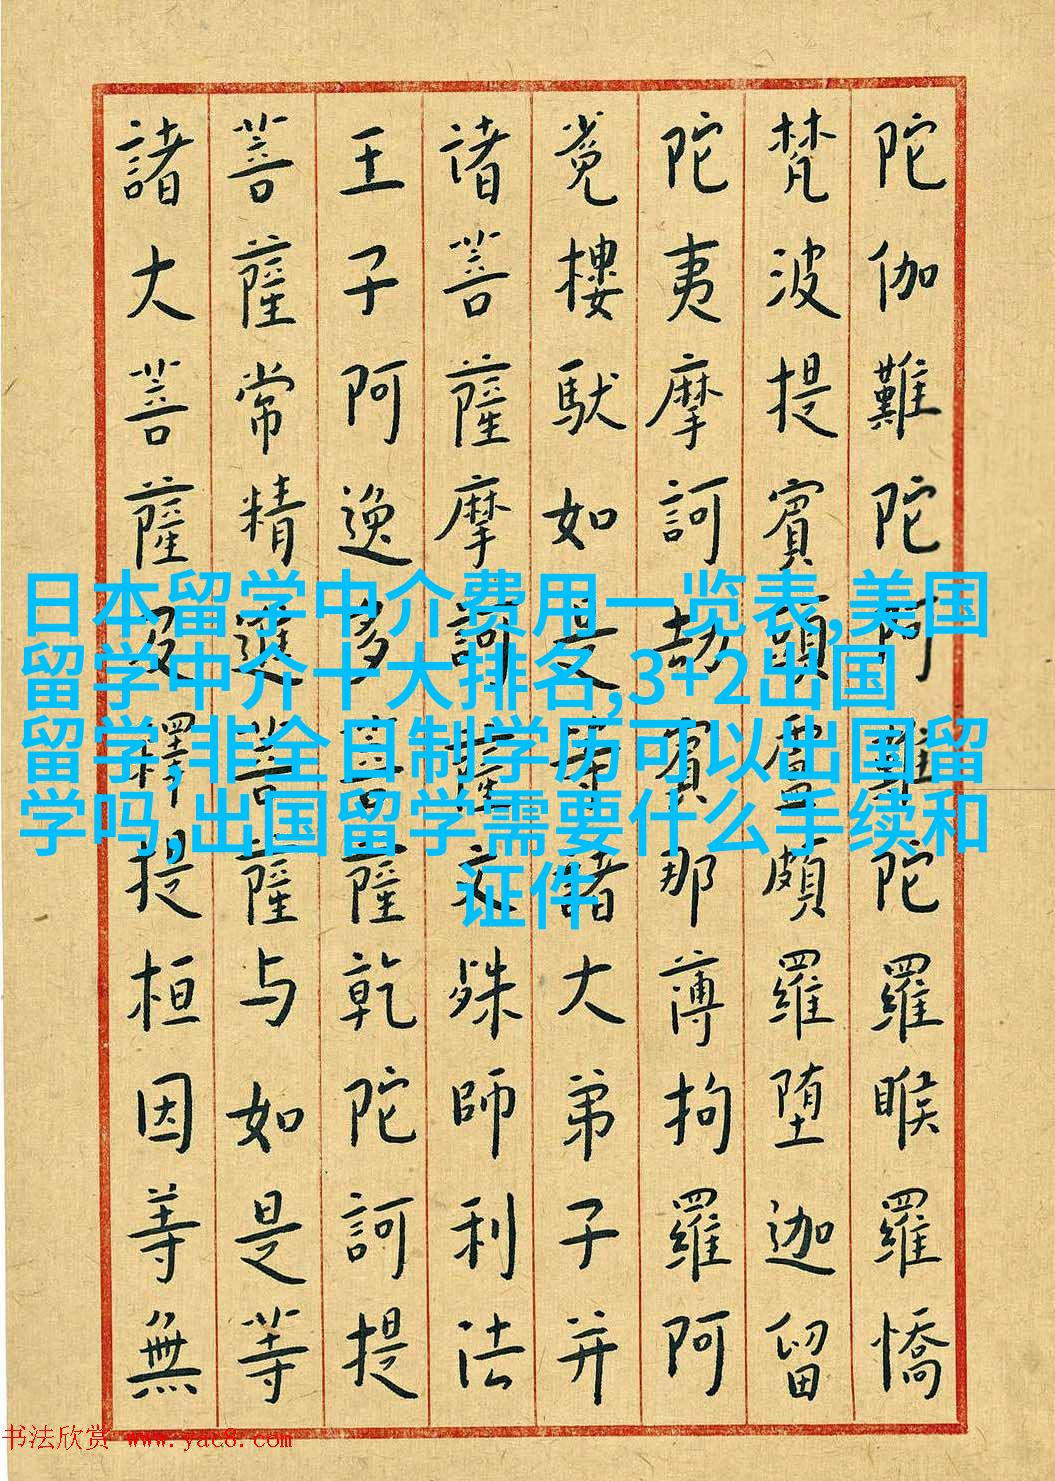 陀伽難陀阿難陀羅睺羅憍
梵波提賓頭盧頗羅堕迦留
陀夷摩訶劫賓那薄拘羅阿
樓馱如是等諸大弟子并
诸菩薩摩訶薩文殊師利法
王子阿逸多菩薩乾陀訶提
菩薩常精進菩薩与如是等
諸大菩薩及釋提桓因等無
日本留学中介费用一览表,美国
留学中介十大排名,3+2出国
留学,非全日制学历可以出国留
学吗,出国留学需要什么手续和
证件
书法欣赏 www.yac8.com